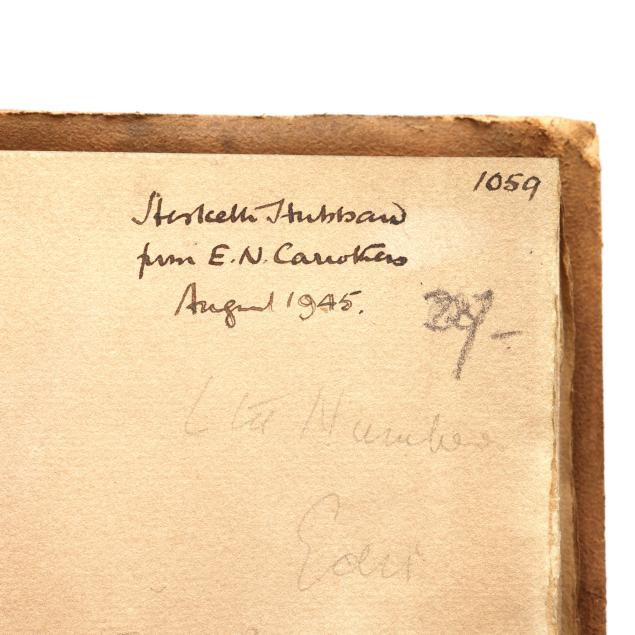 1059
Hesketh Hubbard
from E.N. Carrothers
August 1945.
Ltd Number
Edit